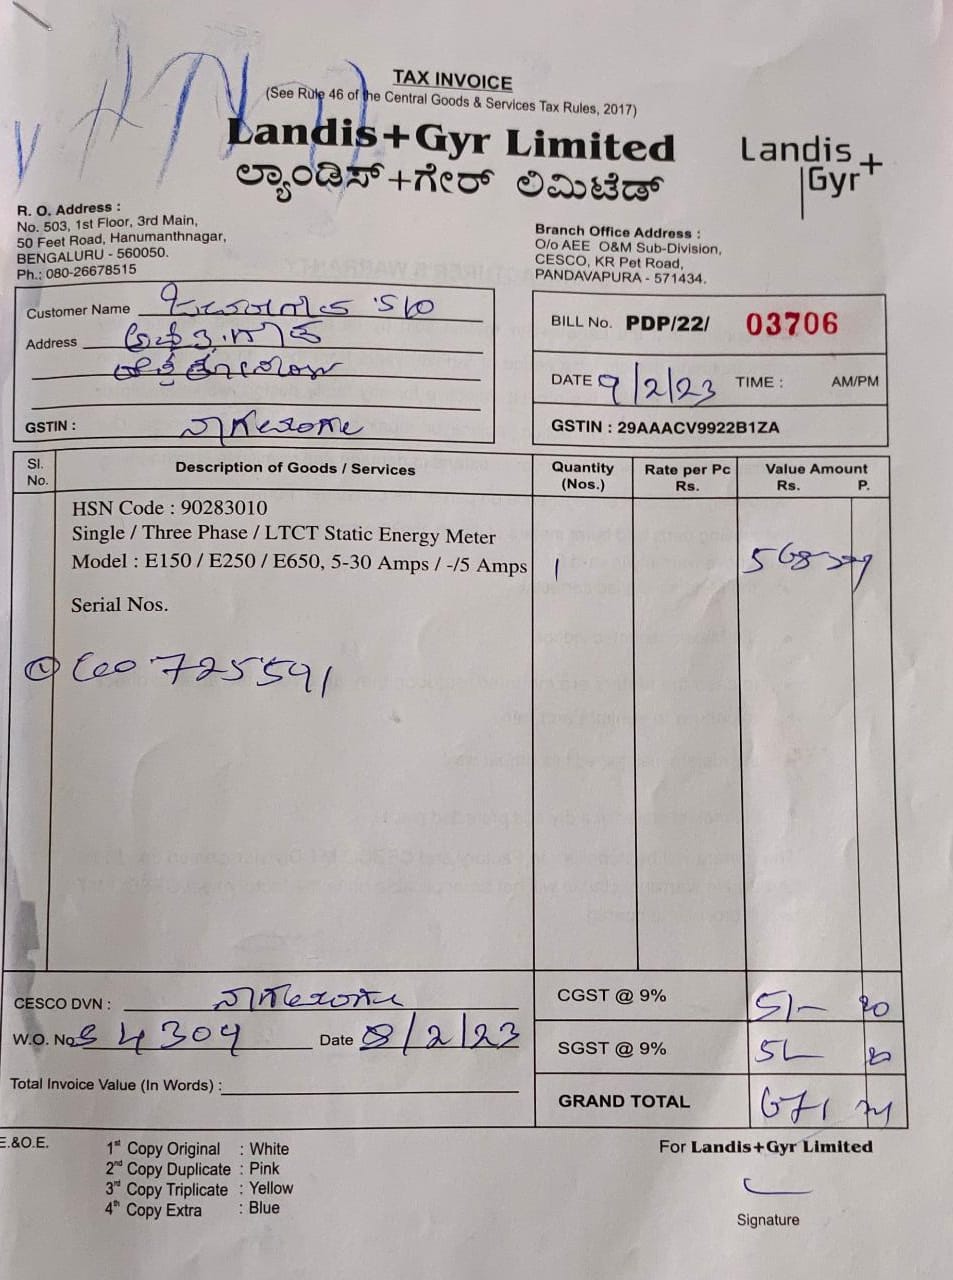 TAX INVOICE
(See Rule 46 of the Central Goods & Services Tax Rules, 2017)
Landis+Gyr Limited
ಲ್ಯಾಂಡಿಸ್+ಗೇರ್ ಲಿಮಿಟೆಡ್
Landis
Gyr+
R. O. Address :
No. 503, 1st Floor, 3rd Main,
50 Feet Road, Hanumanthnagar,
BENGALURU - 560050.
Ph.: 080-26678515
Branch Office Address :
O/o AEE O&M Sub-Division,
CESCO, KR Pet Road,
PANDAVAPURA - 571434.
Customer Name S/O
Address
GSTIN :
BILL No. PDP/22/ 03706
DATE 9/2/23 TIME : AM/PM
GSTIN : 29AAACV9922B1ZA
Sl. No. Description of Goods / Services Quantity (Nos.) Rate per Pc Rs. Value Amount Rs. P.
HSN Code : 90283010
Single / Three Phase / LTCT Static Energy Meter
Model : E150 / E250 / E650, 5-30 Amps / -/5 Amps 1 568
Serial Nos.
725591
CESCO DVN :
W.O. No. 4304 Date 8/2/23
Total Invoice Value (In Words) :
CGST @ 9% 51
SGST @ 9% 51
GRAND TOTAL 671
E.&O.E.
1st Copy Original : White
2nd Copy Duplicate : Pink
3rd Copy Triplicate : Yellow
4th Copy Extra : Blue
For Landis+Gyr Limited
Signature